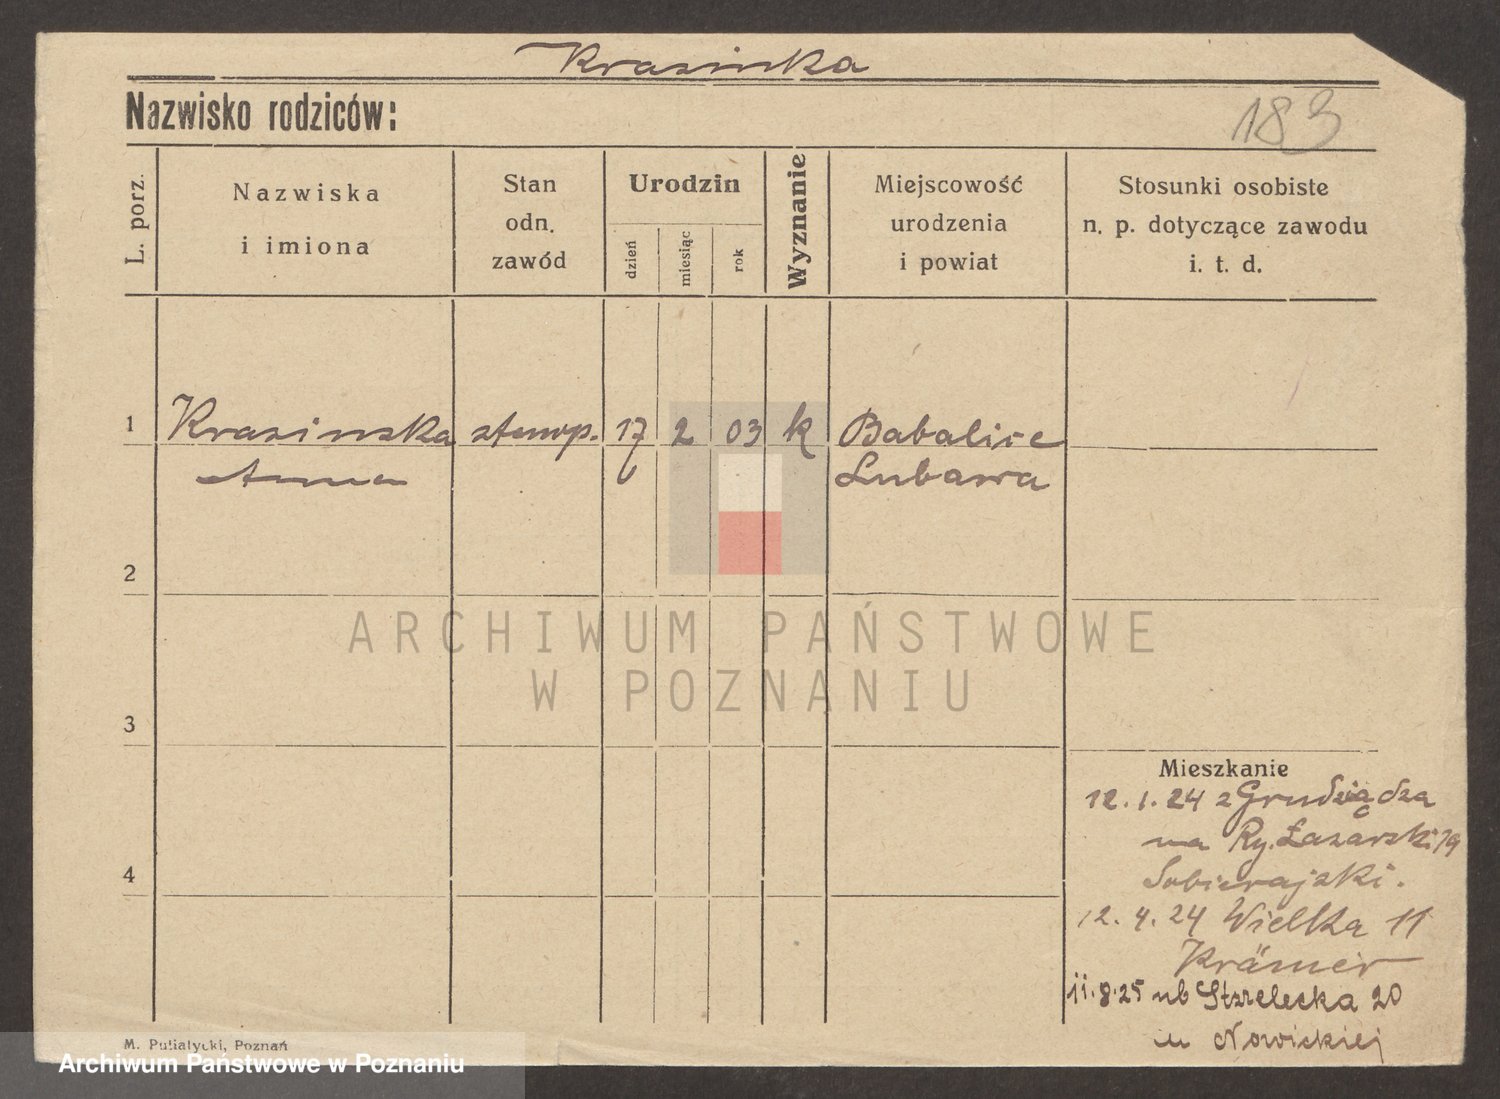 Krasinska
Nazwisko rodziców:
183
L. porz.
Nazwiska
i imiona
Stan
odn.
zawód
Urodzin
dzień
miesiąc
rok
Wyznanie
Miejscowość
urodzenia
i powiat
Stosunki osobiste
n. p. dotyczące zawodu
i. t. d.
1
Krasinska
Anna
stenop.
17
2
03
k
Babalice
Lubawa
2
ARCHIWUM PAŃSTWOWE
W POZNANIU
3
4
Mieszkanie
12.1.24 z Grudziądza
na Ry. Łazarski 19
Sobierajski.
12.4.24 Wielka 11
Krämer
11.8.25 ub Strzelecka 20
u Nowickiej
M. Putiatycki, Poznań
Archiwum Państwowe w Poznaniu